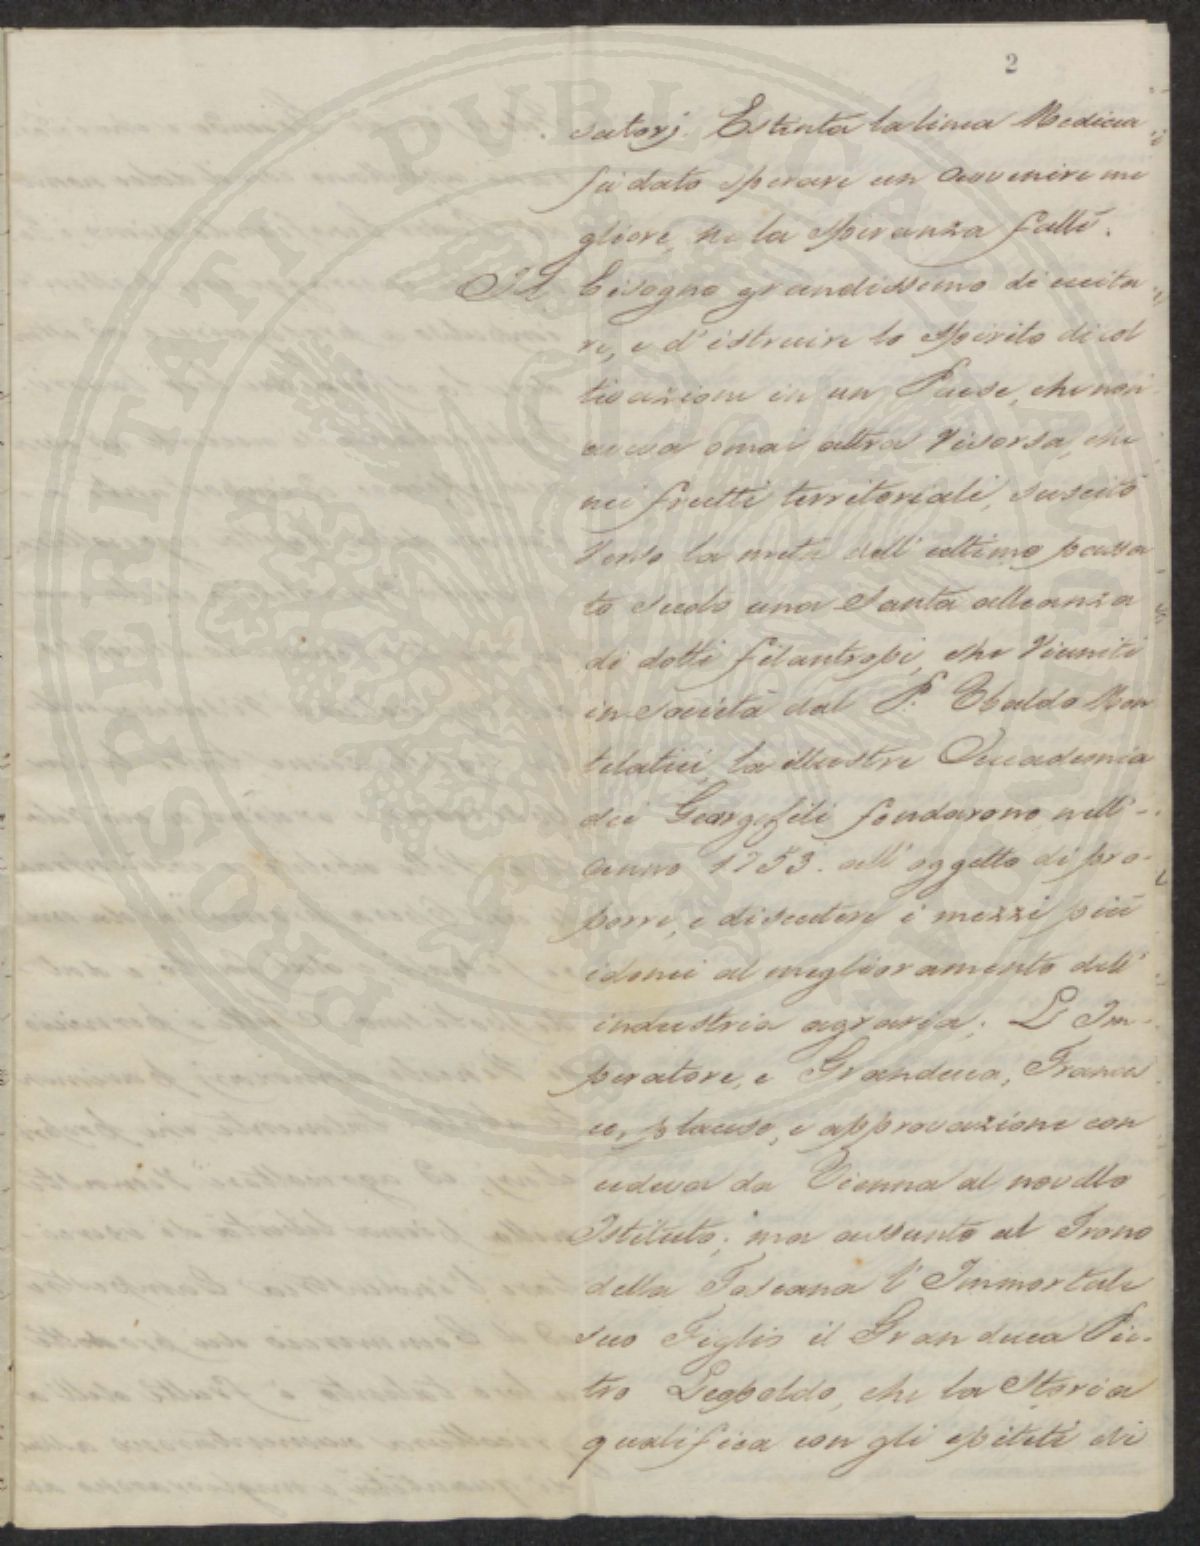 2
satorj. Estinta la linea Medicea
fù dato sperare un avvenire mi
gliore, ne la speranza fallì.
Il bisogno grandissimo di eccita
re, e d'istruire lo spirito di col
tivazione in un Paese, che non
aveva omai altra risorsa, che
nei frutti territoriali, suscitò
verso la metà dell'ultimo passa
to secolo una Santa alleanza
di dotti filantropi, che riuniti
in Società dal P. Ubaldo Mon
telatici, la illustre Accademia
dei Georgofili fondarono nell'
anno 1753. all'oggetto di pro-
porre, e discutere i mezzi più
idonei al miglioramento dell'
industria agraria. L'Im-
peratore, e Granduca, Frances
co, plauso, e approvazione con
cedeva da Vienna al novello
Istituto; ma assunto al Trono
della Toscana l'Immortale
suo Figlio il Granduca Pie-
tro Leopoldo, che la Storia
qualifica con gli epiteti di
PROSPERITATI PVBLICAE